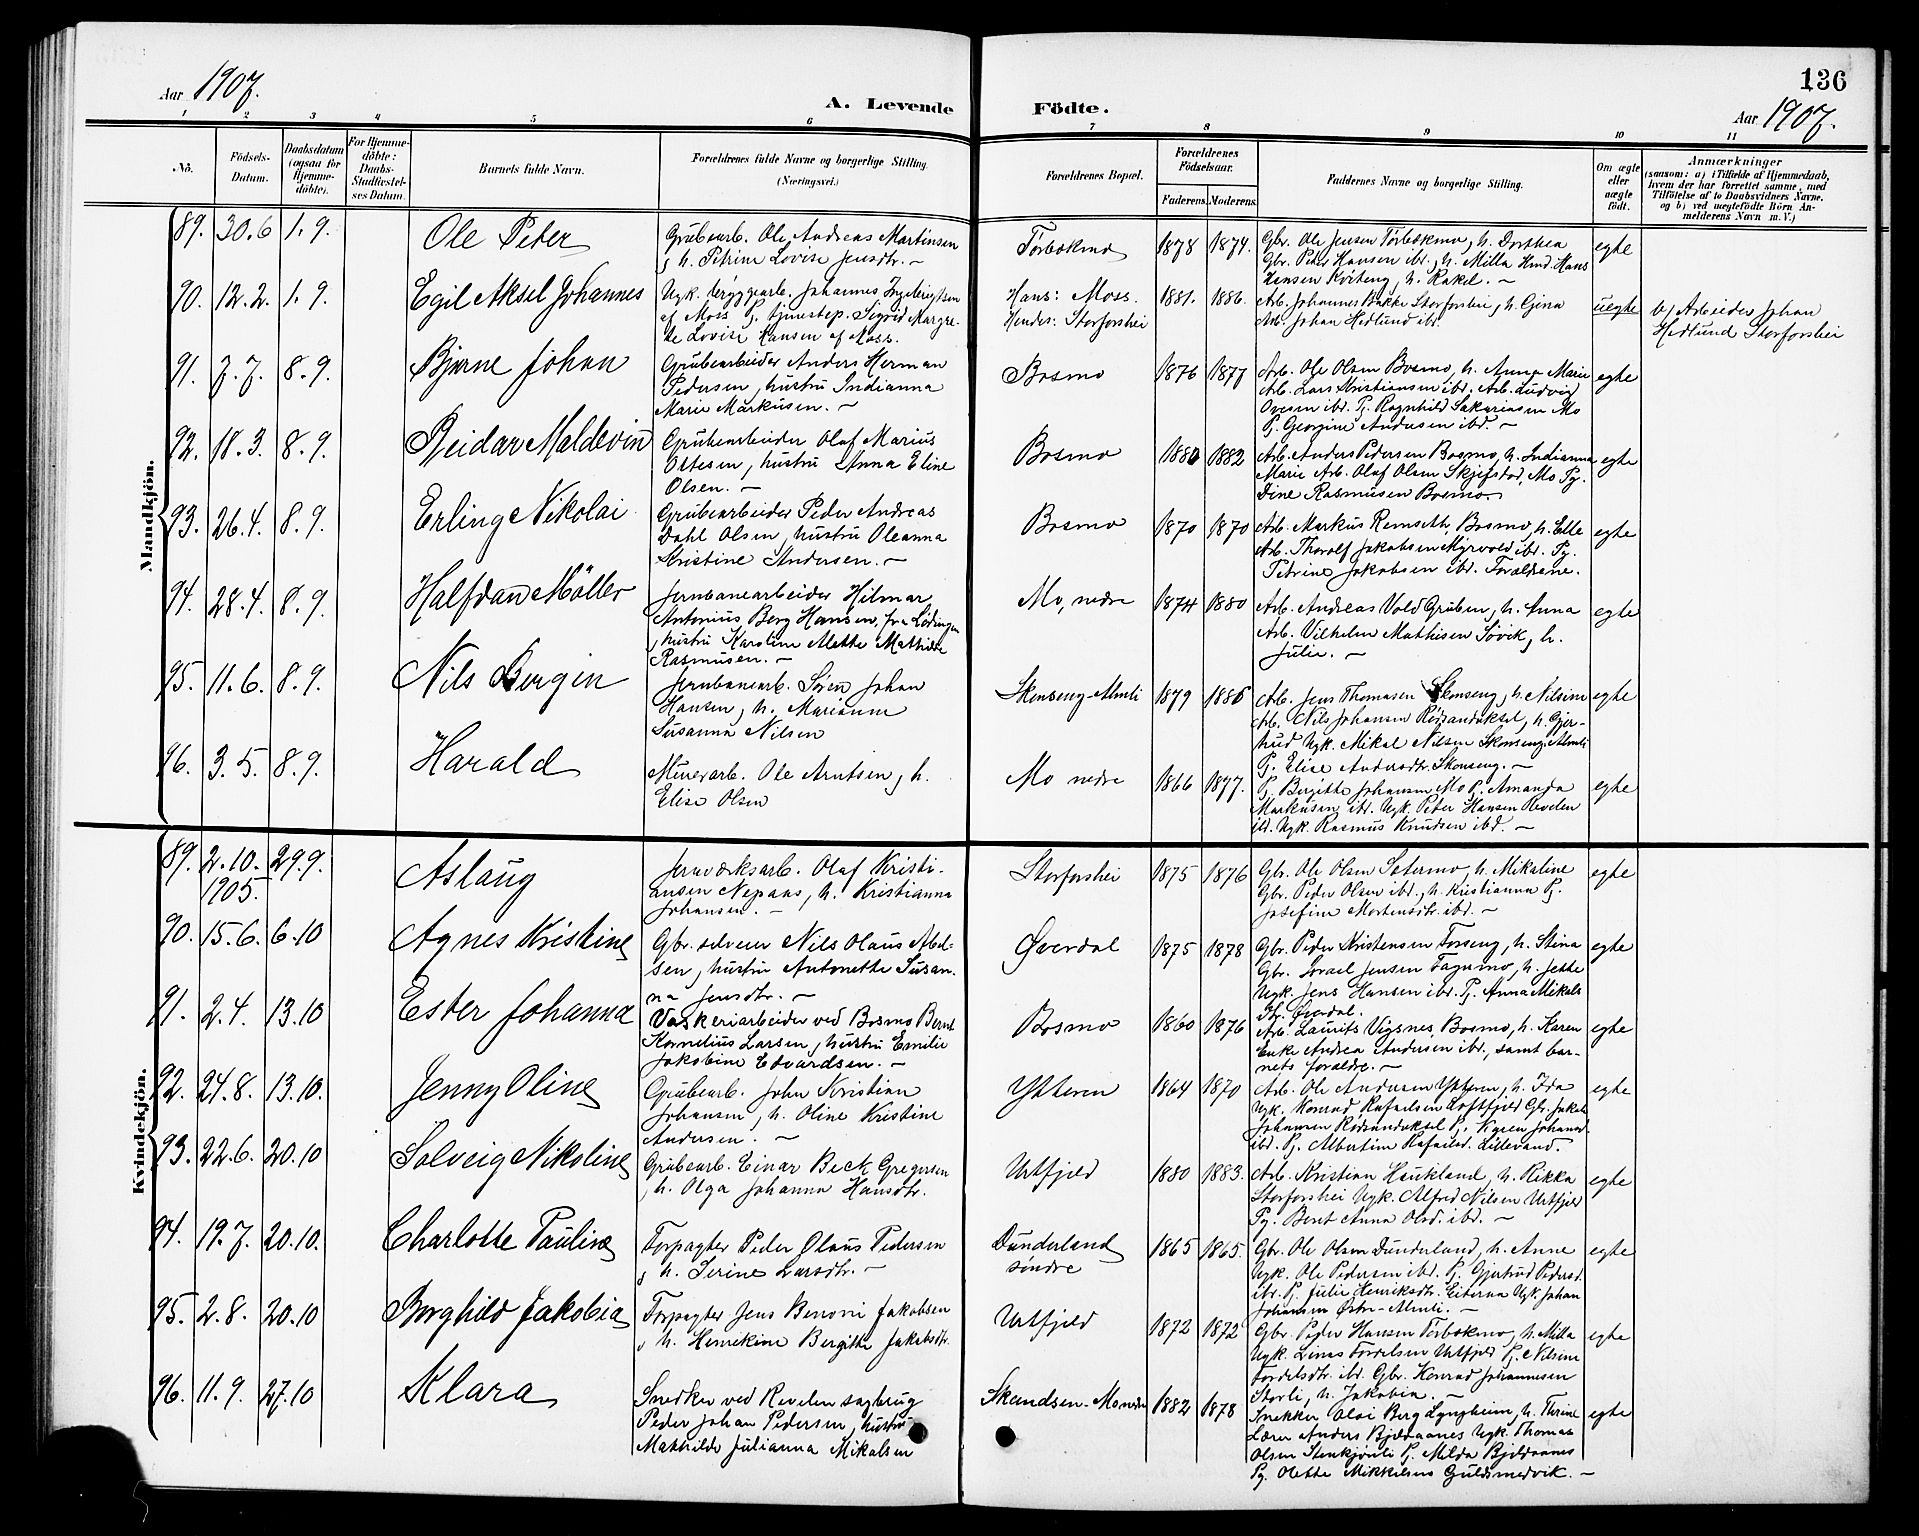 136
Aar 1907.
A. Levende Födte.
Aar 1907.
1 2 3 4 5 6 7 8 9 10 11
No.
Födsels-
Datum.
Daabsdatum
(ogsaa for
Hjemme-
döbte).
For Hjemme-
döbte:
Daabs-
Stadfæstel-
ses Datum.
Barnets fulde Navn.
Forældrenes fulde Navne og borgerlige Stilling.
(Næringsvei.)
Forældrenes Bopæl.
Forældrenes
Födselsaar.
Faderens. Moderens.
Faddernes Navne og borgerlige Stilling.
Om ægte
eller
uægte
födt.
Anmærkninger
(saasom: a) i Tilfælde af Hjemmedaab,
hvem der har forrettet samme, med
Tilföielse af to Daabsvidners Navne,
og b) ved uægtefödte Börn An-
melderens Navn m. V.)
Mandkjön.
89. 30.6 1.9. Ole Peter
Grubearb. Ole Andreas Martinsen
h. Petrine Lovise Jensdtr. –
Torbækmo 1878 1874.
Gbr. Ole Jensen Torbækmo, h. Dorthea
Gbr. Peter Hansen ibr. h. Milla Hans
Hansen h. Rakel. –
egte
90. 12.2. 1.9. Egil Aksel Johannes
Ugk. bryggearb. Johannes Ingebrigtsen
af Moss P. tjenestep. Sigrid Margre-
te Lovise Hansen af Moss.
Hans: Moss.
Hendes: Storforshei
1881. 1886.
Arb. Johannes Bakke Storforshei, h. Gjena
Arb. Johan Hedlund ibr.
uegte
b/ Arbeider Johan
Hedlund Storforshei
91. 7.7. 8.9. Bjarne Johan
Grubearbeider Anders Herman
Pedersen, hustru Indianna
Marie Markusen. –
Bosmo 1876 1877
Arb. Ole Olsen Bosmo, h. Anna Marie
Arb. Lars Kristiansen ibr. Arb. Ludvig
Ovesen ibr. P. Ragnhild Sakariasen Mo
P. Georgine Andersen ibd. –
egte
92. 18.3. 8.9. Reidar Maldevin
Grubearbeider Olaf Marius
Ottesen, hustru Anna Eline
Olsen. –
Bosmo 1880 1882
Arb. Anders Pedersen Bosmo, h. Indianna
Marie Arb. Olaf Olsen Mo Pg.
Dine Rasmusen Bosmo.
egte
93. 26.4. 8.9. Erling Nikolai
Grubearbeider Peder Andreas
Dahl Olsen, hustru Oleanna
Kristine Andersen. –
Bosmo 1870 1870
Arb. Markus Remseth, Bosmo, h. Elle
Arb. Thoralf Jakobsen Myrvold ibr. Pg.
Petrine Jakobsen ibr. Forældrene.
egte
94. 28.4. 8.9. Halfdan Möller
Jernbanearbeider Hilmar
Antonius Berg Hansen, fra Lödingen
hustru Karoline Alette Mathilde
Rasmusen. –
Mo, nedre 1874 1880
Arb. Andreas Vold Gruben, h. Anna
Arb. Vilhelm Mathisen Søvik, h.
Julie. –
egte
95. 11.6. 8.9. Nils Bergin
Jernbanearb. Sören Johan
Hansen, h. Marianne
Susanna Nilsen
Skonseng-Almli 1879 1886
Arb. Jens Thomasen Skonseng, h. Nilsine
Arb. Nils Johansen Rødsandaksel, h. Gjer-
trud Ugk. Mikal Nilsen Skonseng-Almli
P. Elise Andersdtr. Skonseng. –
egte
96. 3.5. 8.9. Harald
Minerarb. Ole Arntsen, h.
Elise Olsen
Mo nedre 1866 1877.
P. Birgitte Johansen Mo P. Amanda
Markusen ibr. Ugk. Peter Hansen Revelen
ibr. Ugk. Rasmus Knudsen ibd. –
egte
Kvindekjön.
89. 2.10. 1905. 29.9. Aslaug
Jernværksarb. Olaf Kristi-
ansen Nepaas, h. Kristianna
Johansen. –
Storforshei 1875 1876
Gbr. Ole Olsen Setermo, h. Mikaline
Gbr. Peder Olsen ibr., h. Kristianna P.
Josefine Mortensdtr. ibd. –
egte
90. 15.6. 6.10 Agnes Kristine
Gbr. Nils Olaus Abel-
sen, hustru Antonette Susan-
na Jensdtr. –
Øverdal 1875 1878
Gbr. Peder Kristensen Forseng, h. Stina
Gbr. Israel Jensen Fagermo, h. Jette
Ugk. Jens Hansen ibr. P. Anna Mikals
dtr. Øverdal.
egte
91. 2.4. 13.10 Ester Johanna
Vaskeriarbeider ved Bosmo Bernt
Kornelius Larsen, hustru Emilie
Jakobine Edvardsen. –
Bosmo 1860 1876
Arb. Laurits Vigsnes, Bosmo, h. Karen
Enke Andrea Andersen ibr., samt bar-
nets forældre. –
egte
92. 24.8. 13.10. Jenny Oline
Grubearb. John Kristian
Johansen, h. Oline Kristine
Andersen. –
Ytteren 1864 1870
Arb. Ole Andersen Ytteren, h. Ida
Ugk. Konrad Rafaelsen Loftfjeld Gbr. Jakob
Johansen Rødsandaksel P. Karen Johansd.
ibd. P. Albertine Rafaelsd. Lillevand.
egte
93. 22.6. 20.10 Solveig Nikoline
Grubearb. Einar Beck Gregersen
, h. Olga Johanna Hansdtr.
Urtfjeld 1880 1883.
Arb. Kristian Haukland, h. Rikka
Storforshei Ugk. Alfred Nilsen Urtfjeld
Pg. Bent Anna Olsd. ibr. –
egte
94. 19.7. 20.10. Charlotte Pauline
Forpagter Peder Olaus Pedersen
, h. Serine Larsdtr. –
Dunderland
søndre
1865 1865.
Gbr. Ole Olsen Dunderland, h. Anne
Ugk. Ole Pedersen ibr. P. Gjertrud Pedersd.
ibr. P. Julie Henriksdtr. Eiteraa Ugk. Johan
Johansen Østre-Almli. –
egte
95. 2.8. 20.10 Borghild Jakobia
Forpagter Jens Benoni Jakobsen
, h. Henrikine Bergitte Jakobsdtr.
Urtfjeld 1872 1872
Gbr. Peder Hansen Torbækmo, h. Milla
Ugk. Linas Tordelsen Urtfjeld P. Nilsine
Tordelsdtr. ibr. Gbr. Konrad Johannesen
Storli, h. Jakobia. –
egte
96. 11.9. 27.10 Klara
Snedker ved Revelen sagbrug
Peder Johan Pedersen, hustru
Mathilde Julianna Mikalsen
Skandsen-Mo nedre 1882 1878
Snekker Olai Berg Lyngheim, h. Thrine
Lærer Anders Bjeldaanes Ugk. Thomas
Olsen Stenkjønli P. Milda Bjeldaanes
Pg. Olette Mikkelsens Guldsmedvik. –
egte